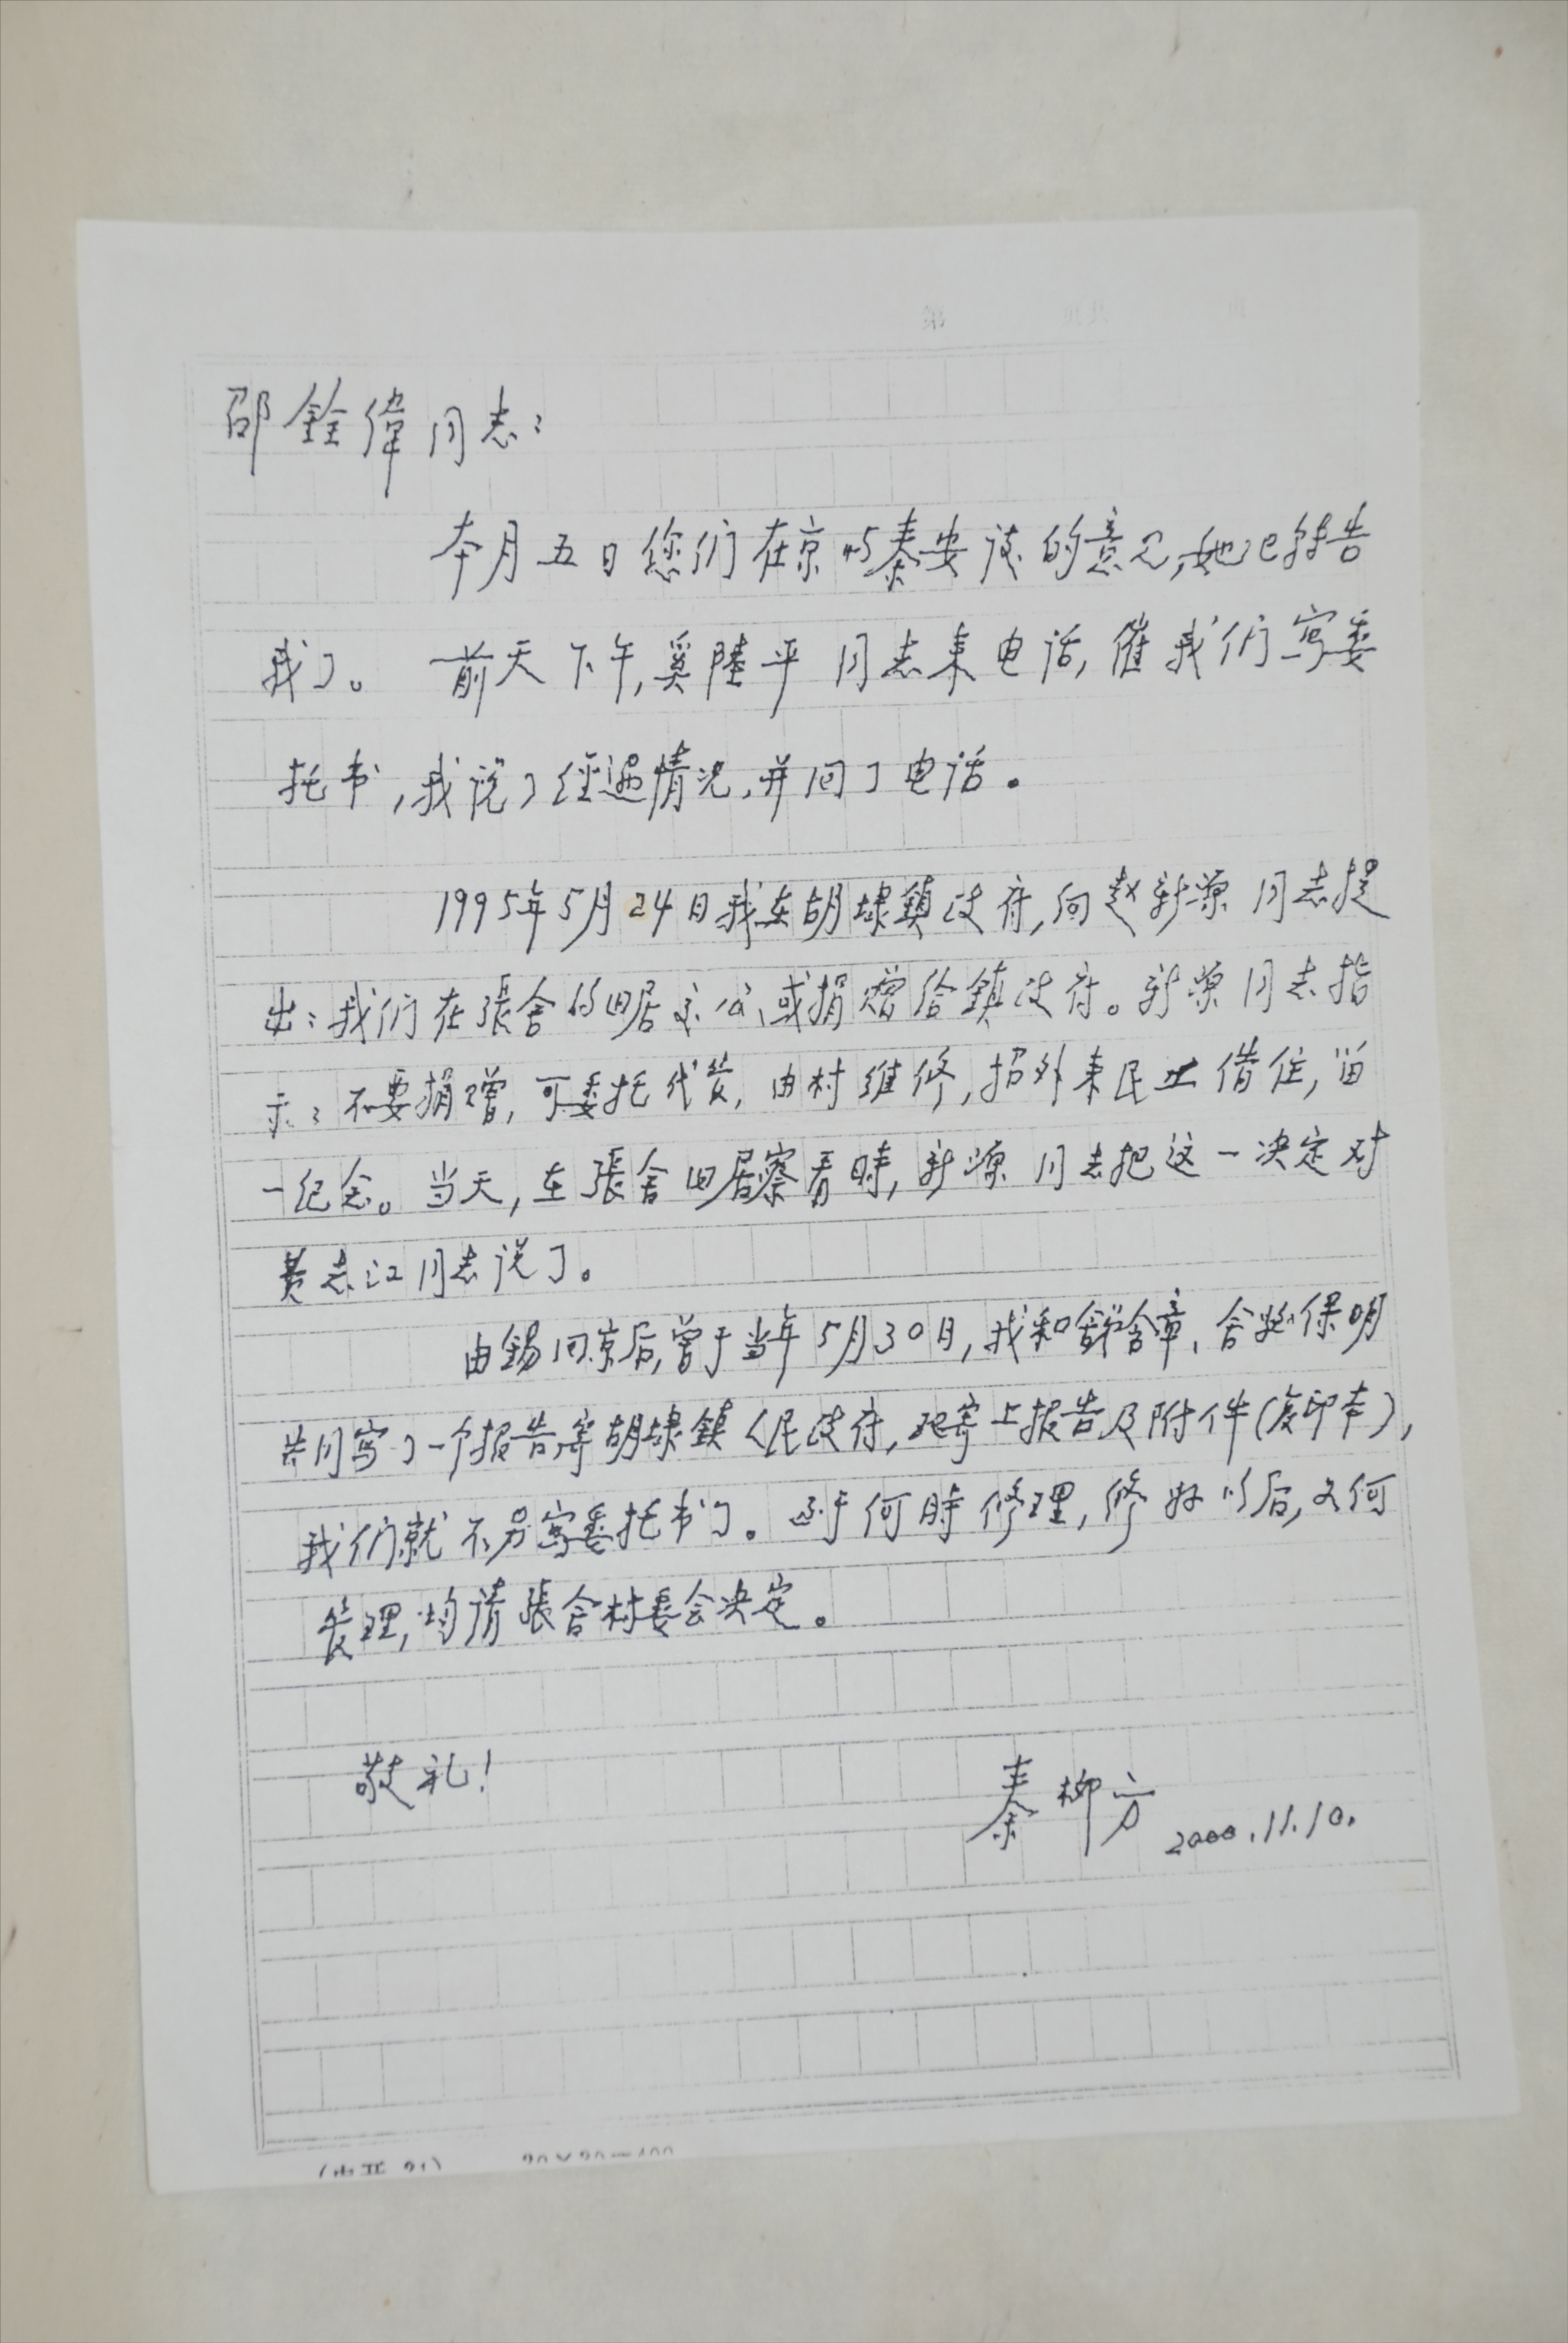 邵銓偉同志：
本月五日您们在京的秦安谈的意见，她已转告
我了。 前天下午，奚陸平同志来电话，催我们写委
托书，我说了经过情况，并回了电话。
1995年5月24日我在胡埭鎮政府，向赵新源同志提
出：我们在張舍的旧居交公、或捐赠给鎮政府。新源同志指
示：不要捐赠，可委托代管，由村维修，招外来民工借住，留
一纪念。当天，在張舍旧居察看時，新源同志把这一决定对
黄志江同志说了。
由錫回京后，曾于当年5月30日，我和 含章、含 保明
共同写了一个报告寄胡埭鎮人民政府，现寄上报告及附件（复印本），
我们就不另写委托书了。至于何時修理，修好以后，如何
管理，均请張舍村委会决定。
敬礼！
秦柳方
2000.11.10.
20×20＝400